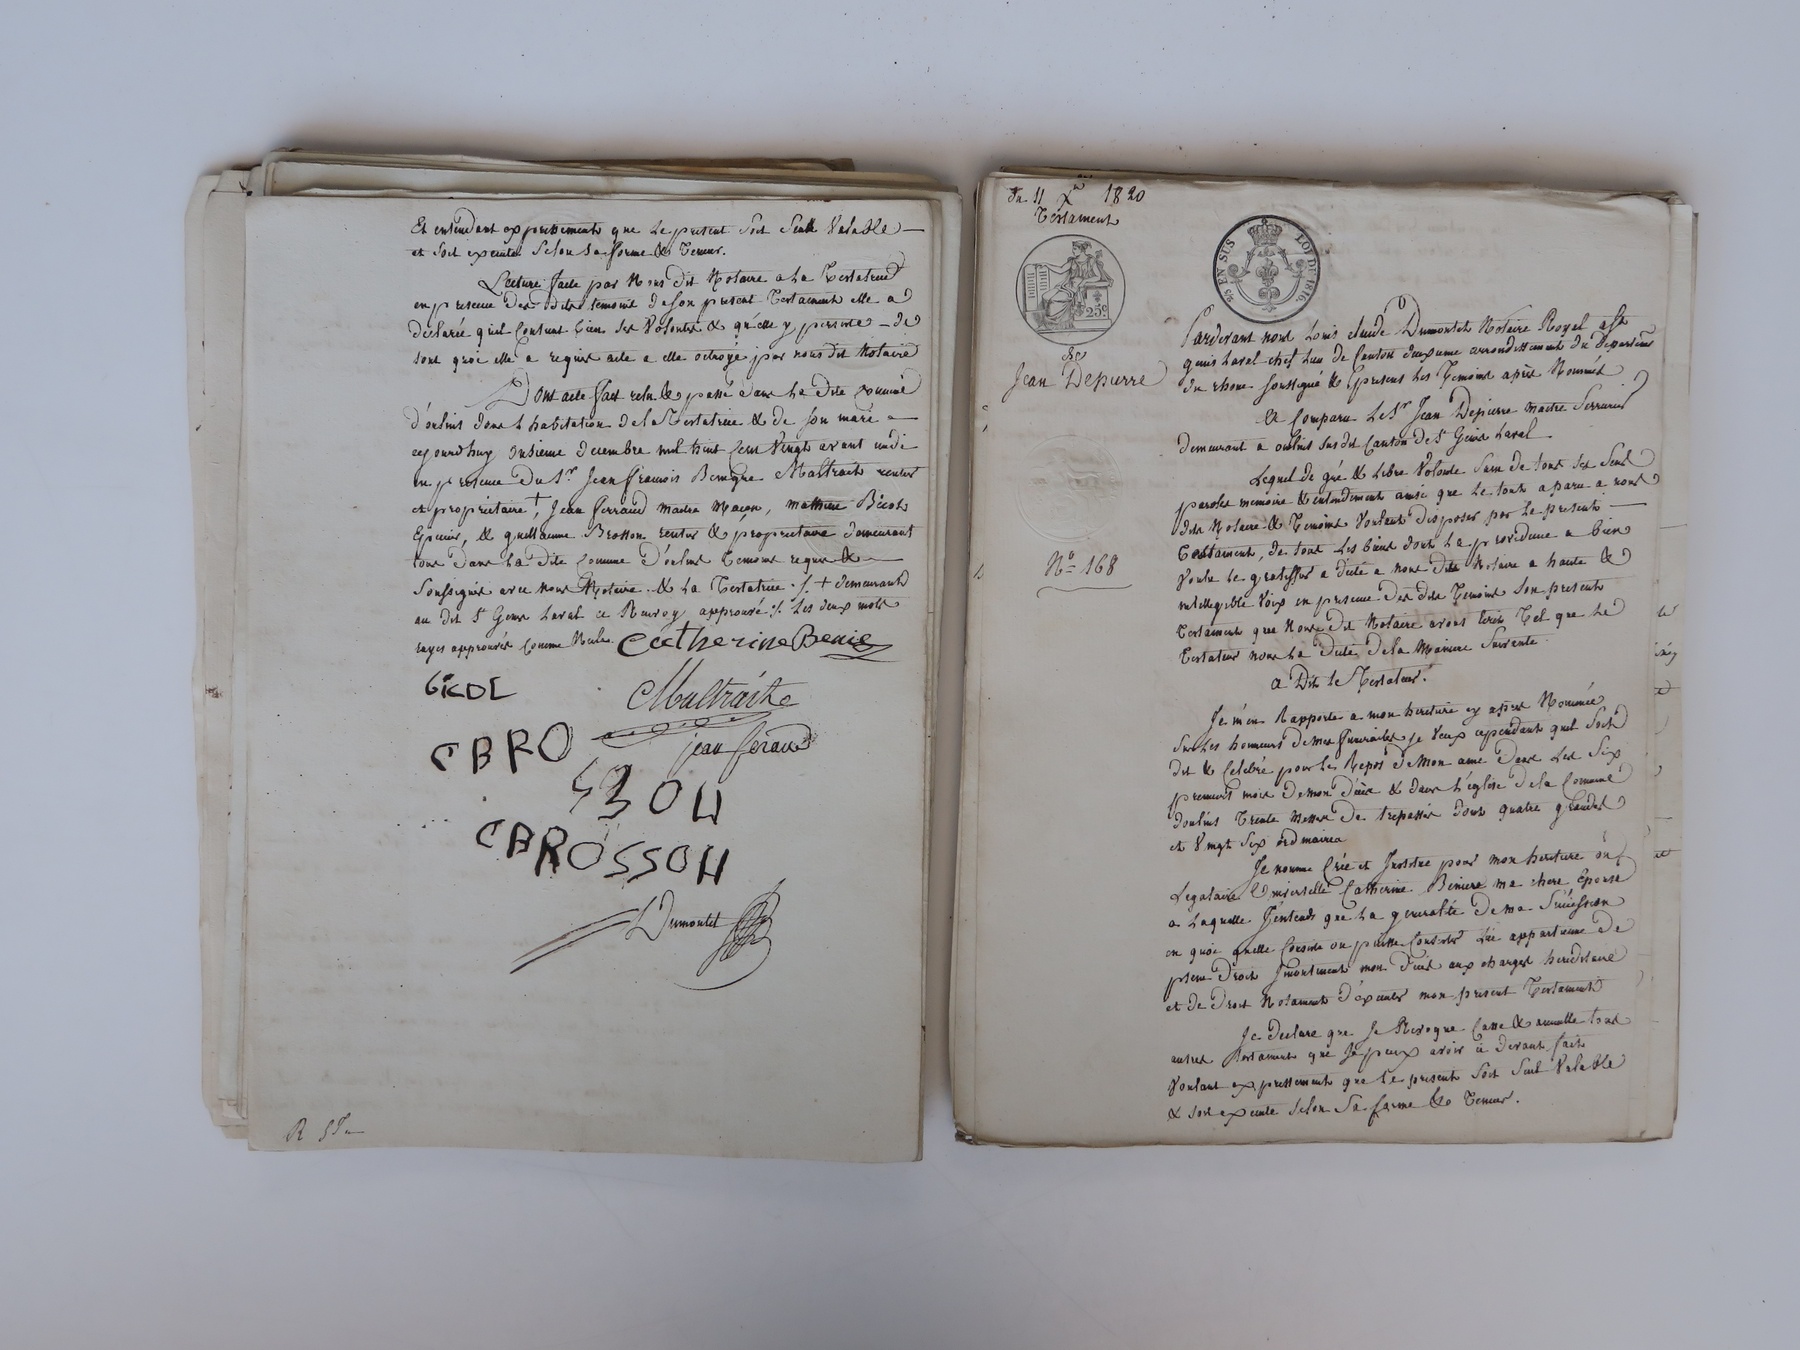 Et entendant expressement que Le present soit seull Valable
et soit executé selon sa forme & Teneur.
Lecture faite par Nous dit Notaire a La Testatrice
en presence des dits temoins de son present Testament elle a
declarée qu'il Contient bien ses Volontés & qu'elle y persiste de
tout quoi elle a requis acte a elle octroyé par nous dit Notaire
Dont acte fait relu & passé dans La dite Commune
d'oulins dans L'habitation de La Testatrice & de son mari
cejourd'huy onsieme decembre mil huit cent Vingt avant midi
en presence du Sr. Jean francois Benigne Maltrait rentier
et propriétaire †, Jean ferraud maitre Macon, mathieu
Epicier, & guillaume Brosson rentier & propriétaire demeurant
tous dans La dite Commune D'oulins Temoins requis &
Soussignés avec nous Notaire & La Testatrice ./. † demeurant
au dit St Genis Laval ce Renvoy approuvé ./. Les deux mots
rayés approuvés comme Nuls. Catherine Benie
Maltraite
CBRO
jean feraud
CBROSSON
Dumontet
R 5f
Du 11 Xbre 1820
Testament
25c
25 EN SUS LOI DE 1816.
De
Jean Depierre
No 168
Pardevant nous Louis claude Dumontet Notaire Royal a St
genis Laval chef Lieu de Canton deuxieme arrondissement du Departemt
du rhone soussigné & presens Les Temoins après Nommés
A Comparu Le Sr Jean Depierre maitre Serrurier
demeurant a oulins susdit Canton de St Genis Laval
Lequel de gré & Libre Volonté sain de tous ses sens
paroles memoire & entendement ainsi que Le tout a paru a nous
dits Notaire & Temoins Voulant disposer par Le present
Testament, de tous Les biens dont La providence a bien
Voulu Le gratifier a dicté a nous dits Notaire a haute &
intelligible Voix en presence Des dits Temoins son present
Testament que Nous dit Notaire avons Ecrit Tel que Le
Testateur nous La Dicté de La Maniere Suivante
A Dit Le Testateur.
Je m'en Rapporte a mon heritiere cy après Nommée
sur Les honneurs De mes funerailles je Veux cependant quil Soit
dit & Celebré pour Le Repos De Mon ame Dans Les Six
premiers mois De mon décès & dans L'église De La Commune
doulins Trente Messes De trepassés dont quatre grandes
et Vingt Six ordinaires
Je nomme Crée et Institue pour mon heritiere ou
Legataire Universelle Catherine Beniere ma chere Epouse
a Laquelle J'entends que La generalité De ma Succession
en quoi quelle Consiste ou puisse Consister Lui appartienne De
plein Droit mon Decès aux charges hereditaire
et de Droit Notament D'executer mon present Testament
Je declare que Je Revoque Casse & annulle tous
autres Testament que Je peux avoir ci devant fait
Voulant expressement que Le present Soit Seul Valable
& soit executé selon Sa forme & Teneur.